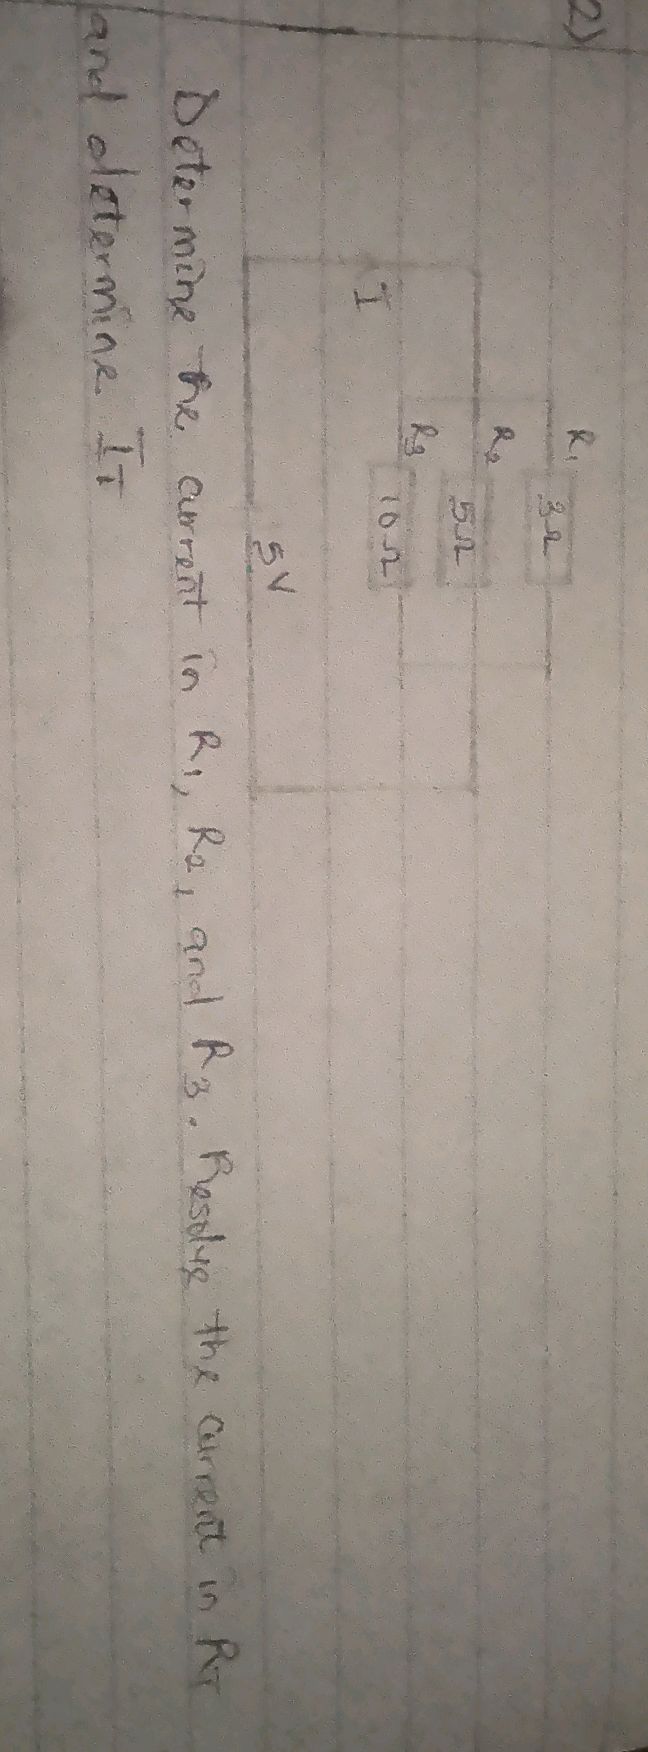 2)
R1
3Ω
R2
5Ω
R3
10Ω
I
5V
Determine the current in R1, R2, and R3. Resolve the current in RT
and determine IT